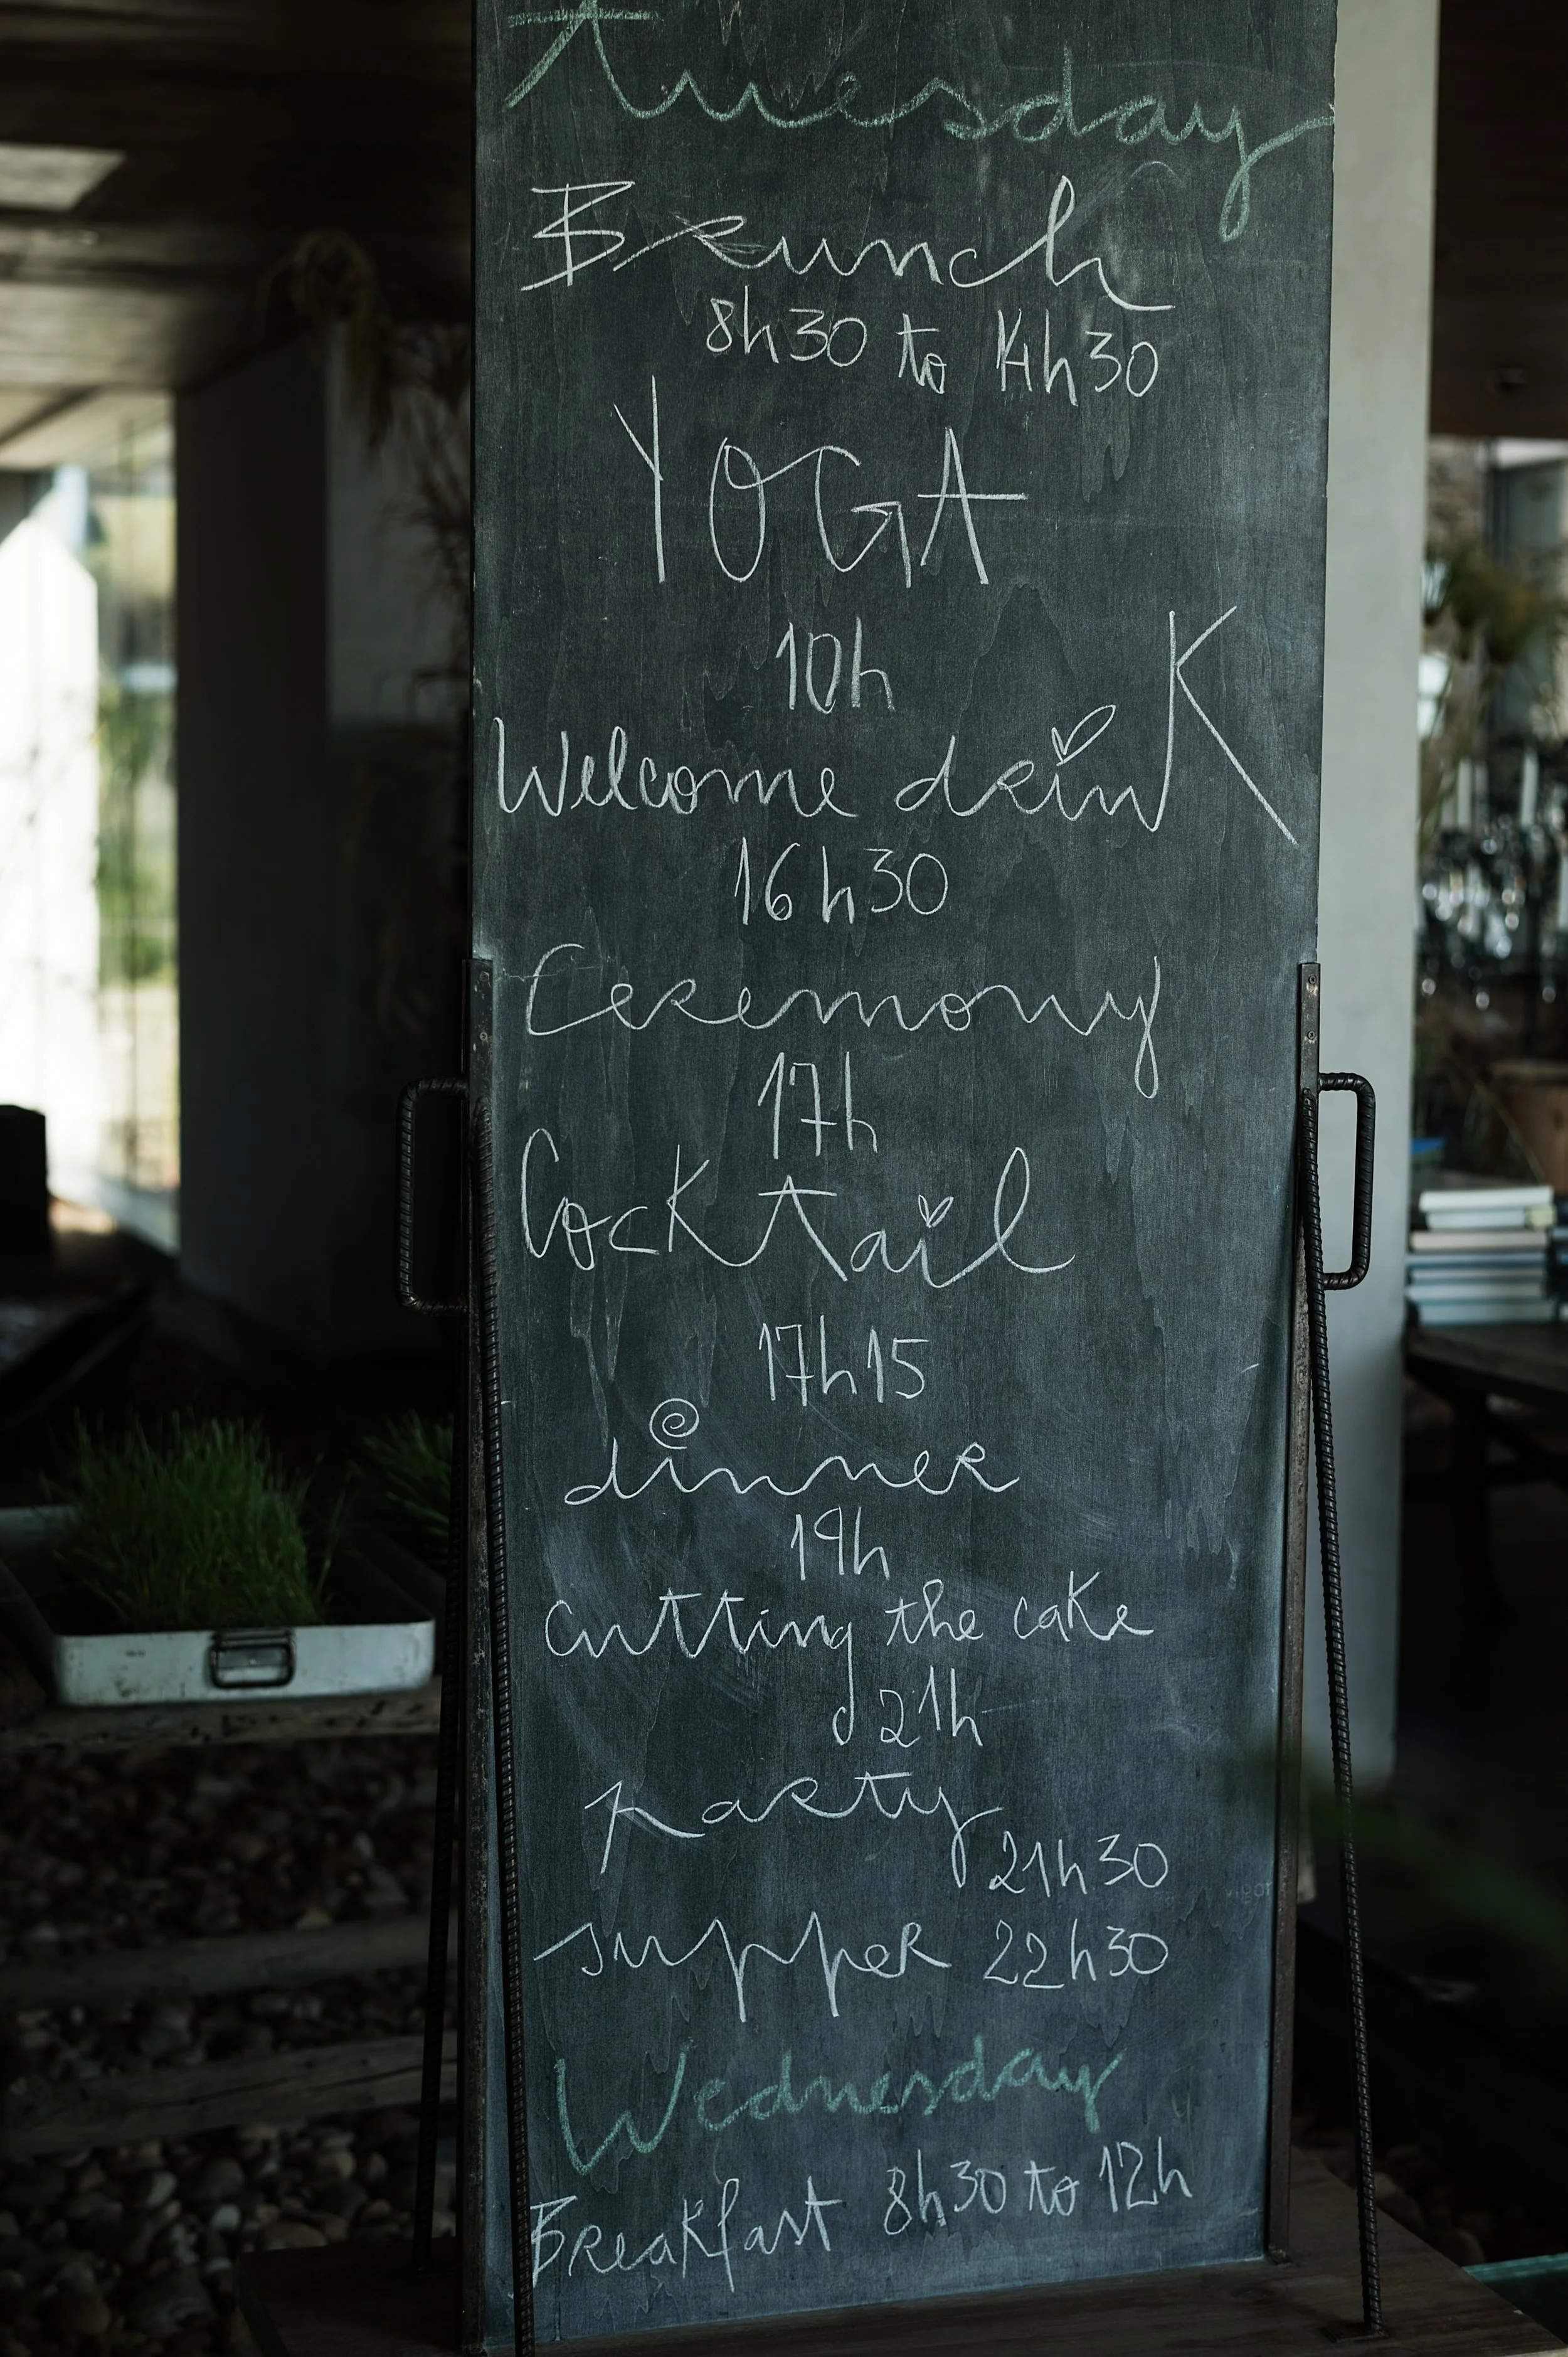 tuesday
Brunch
8h30 to 14h30
YOGA
10h
Welcome drinK
16h30
Ceremony
17h
CocKtail
17h15
dinner
19h
cutting the caKe
21h
party
21h30
supper 22h30
Wednesday
BreaKfast 8h30 to 12h